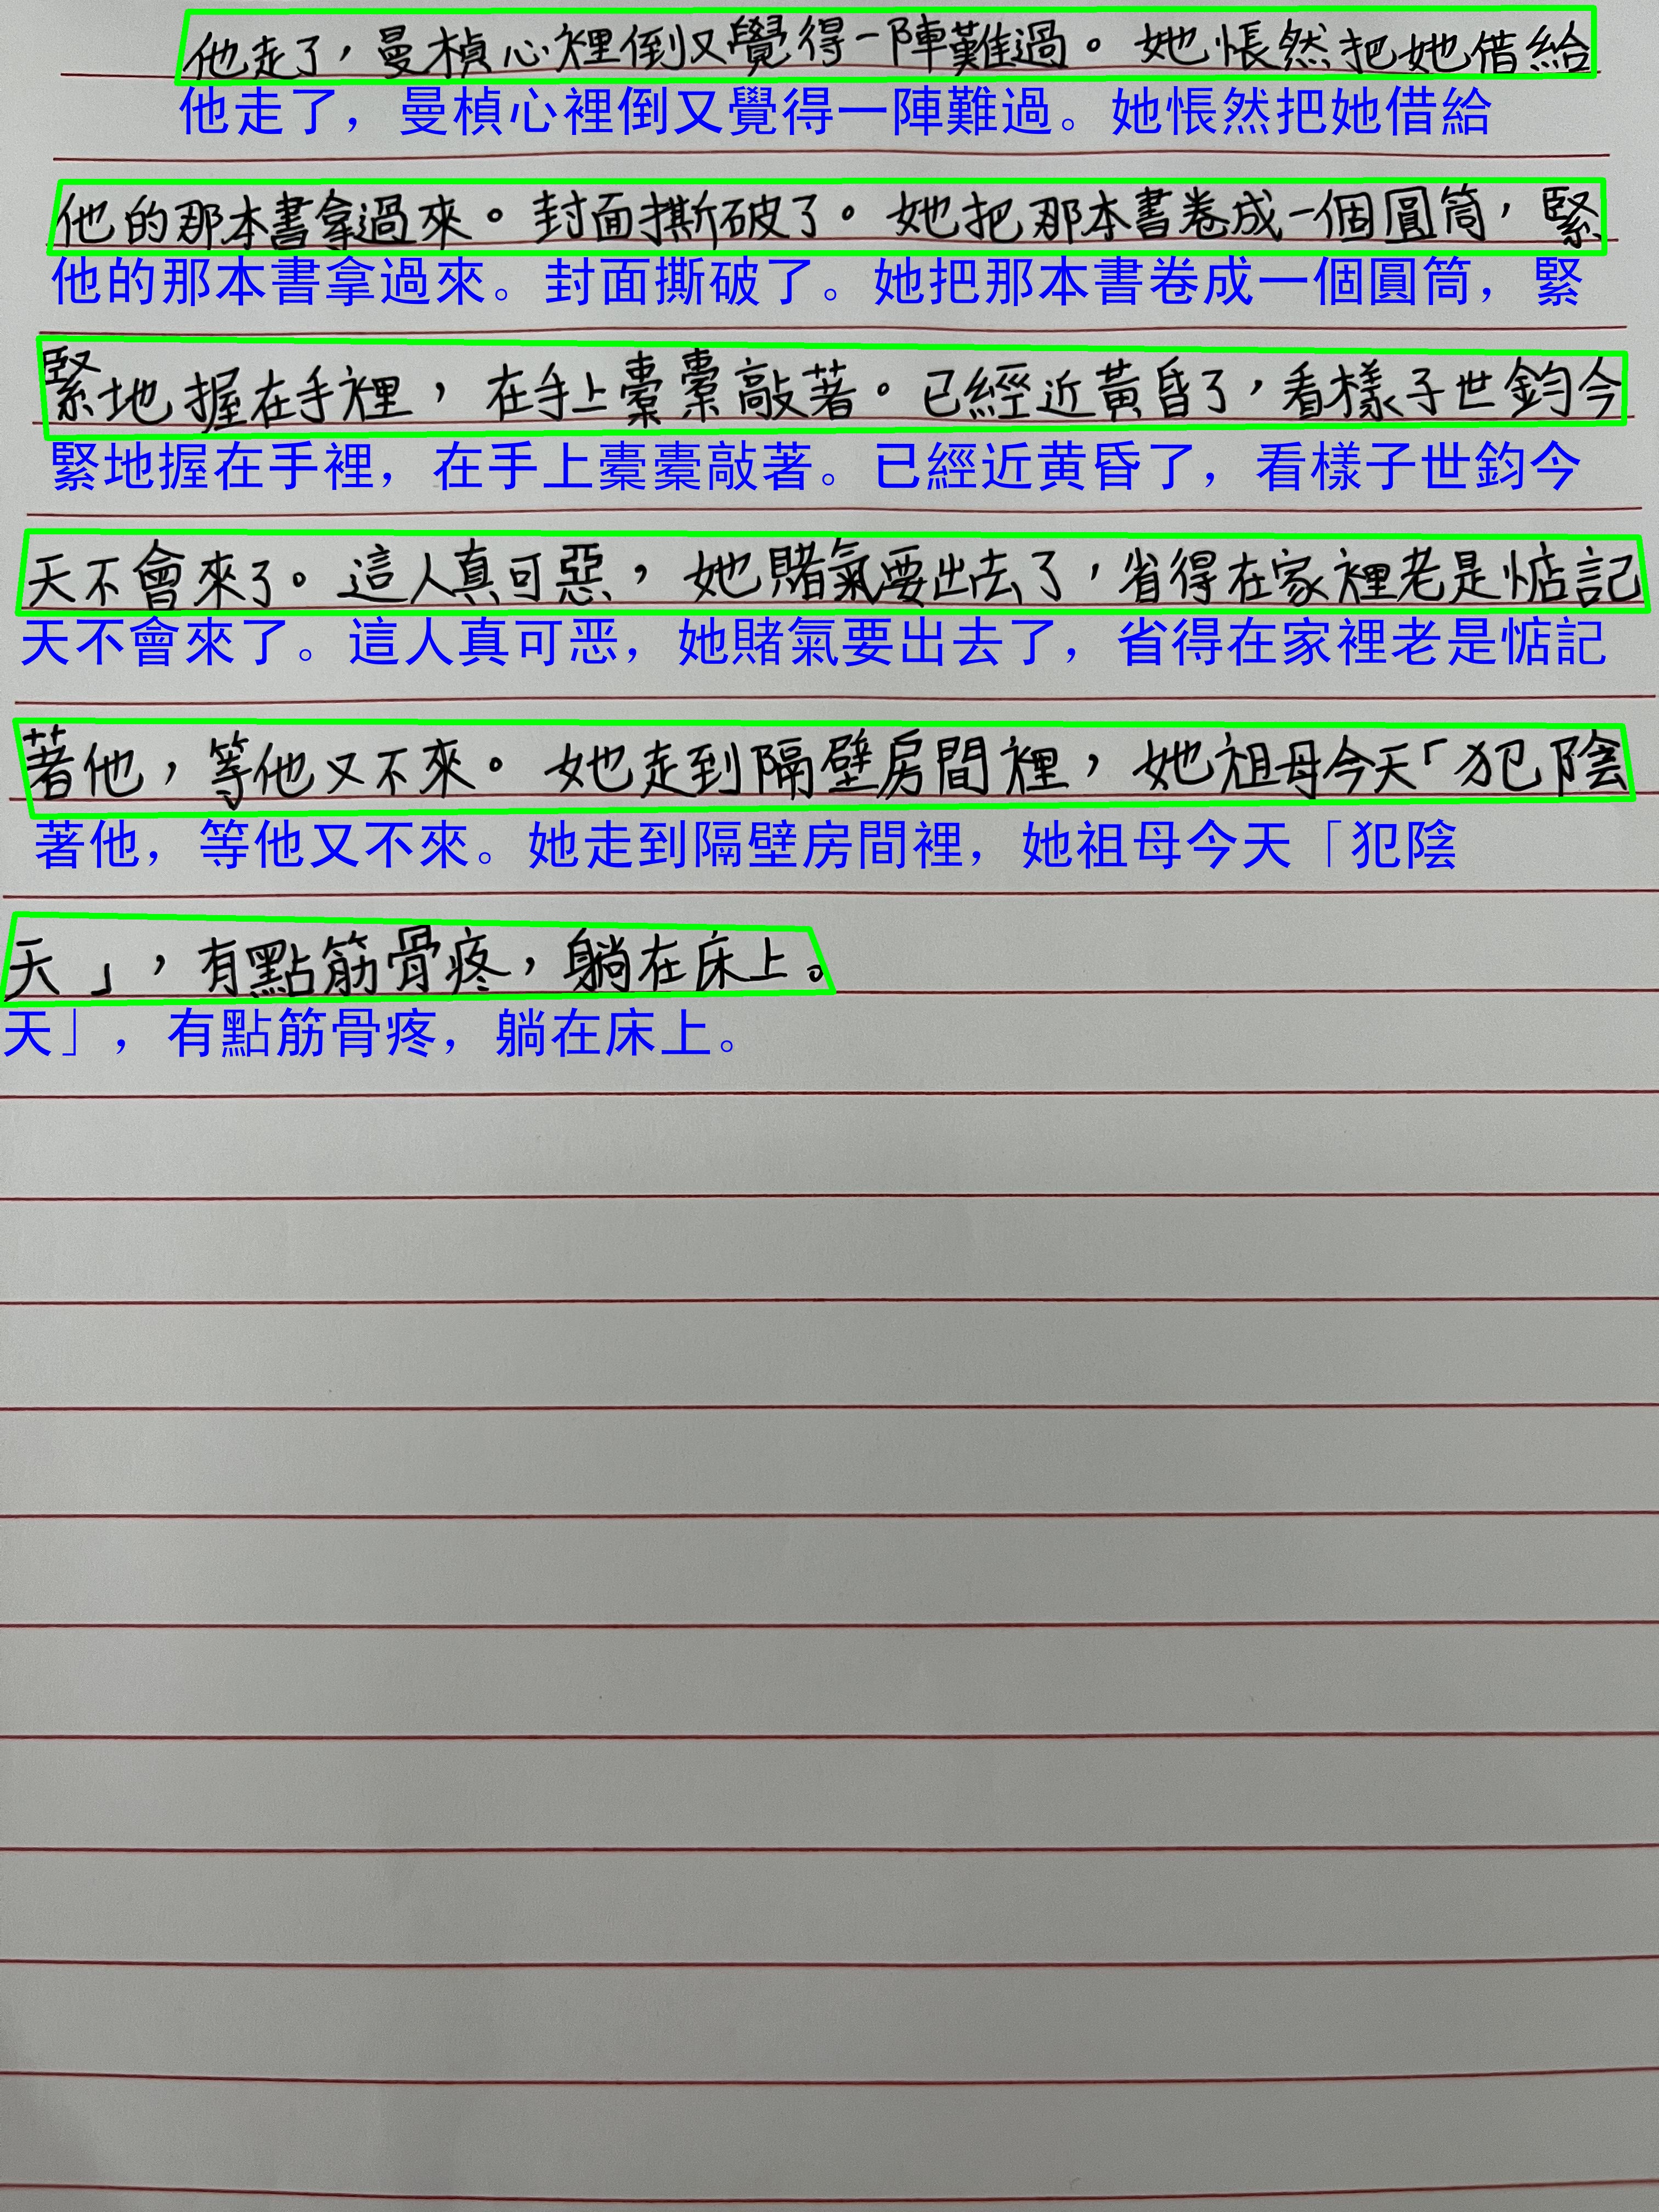 他走了，曼楨心裡倒又覺得一陣難過。她悵然把她借給
他走了，曼楨心裡倒又覺得一陣難過。她悵然把她借給
他的那本書拿過來。封面撕破了。她把那本書卷成一個圓筒，緊
他的那本書拿過來。封面撕破了。她把那本書卷成一個圓筒，緊
緊地握在手裡，在手上橐橐敲著。已經近黃昏了，看樣子世鈞今
緊地握在手裡，在手上橐橐敲著。已經近黄昏了，看樣子世鈞今
天不會來了。這人真可惡，她賭氣要出去了，省得在家裡老是惦記
天不會來了。這人真可恶，她賭氣要出去了，省得在家裡老是惦記
著他，等他又不來。她走到隔壁房間裡，她祖母今天「犯陰
著他，等他又不來。她走到隔壁房間裡，她祖母今天「犯陰
天」，有點筋骨疼，躺在床上。
天」，有點筋骨疼，躺在床上。